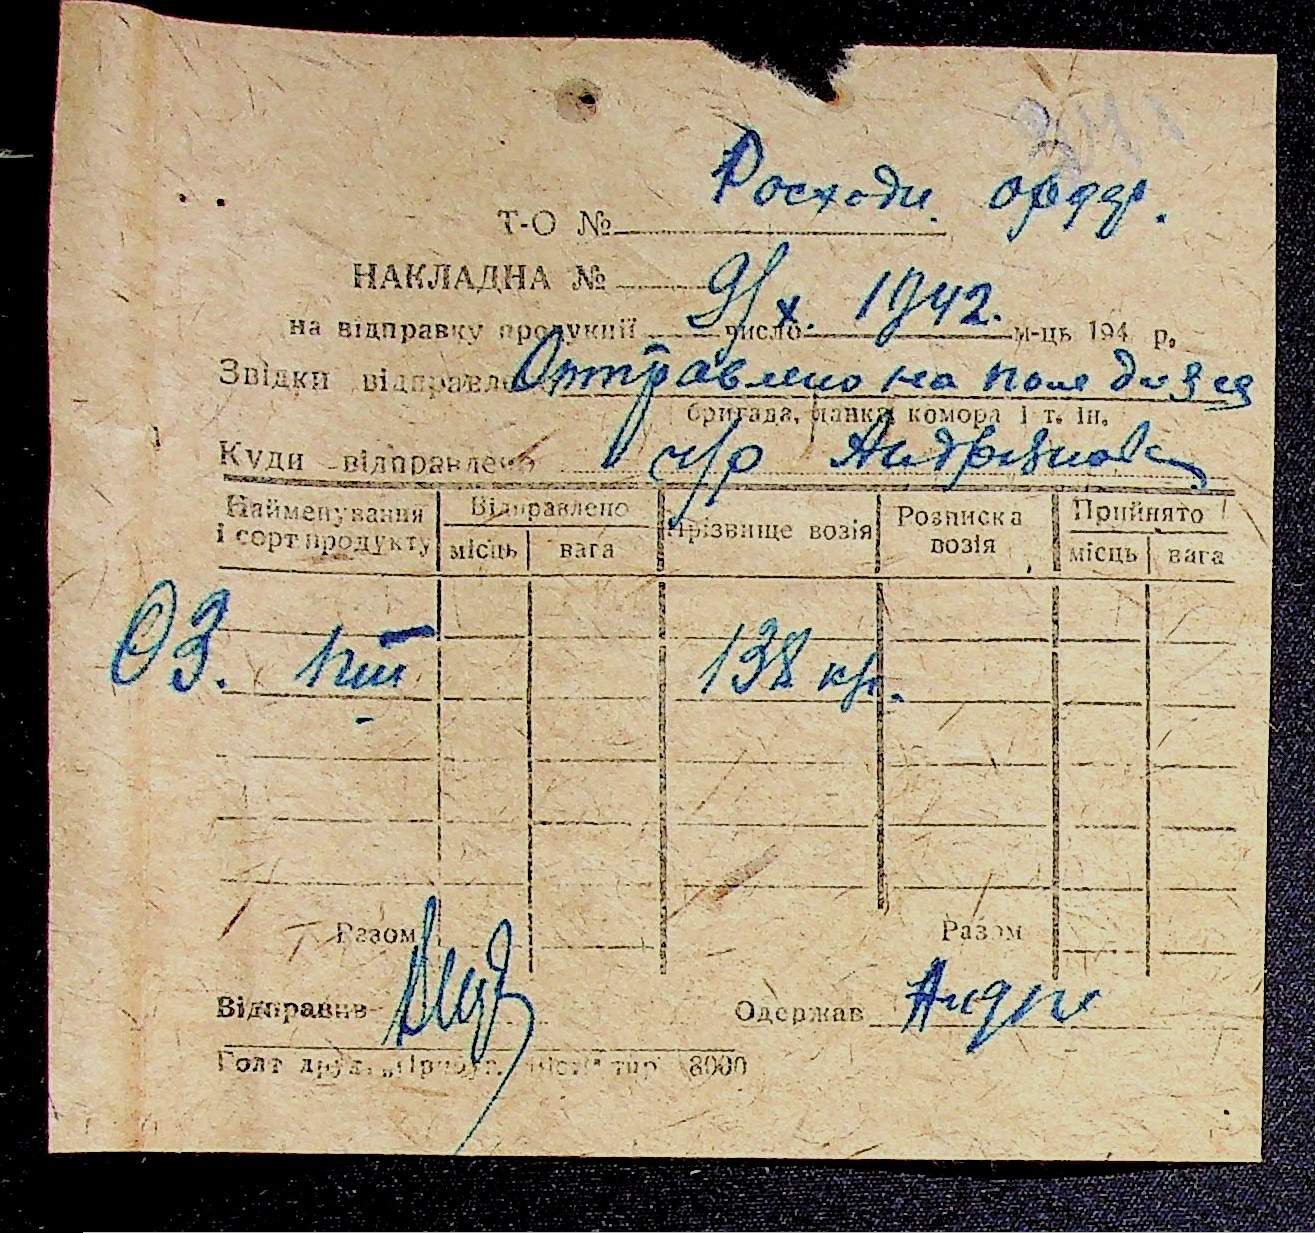 Росходн. ордер.
Т-О №
НАКЛАДНА №
9/х. 1942.
на відправку продукції число м-ць 194 р.
Звідки відправлено Отправлено на поле для
бригада, ланка, комора і т. ін.
Куди відправлено ч/р
Найменування і сорт продукту Відправлено місць вага Прізвище возія Розписка возія Прийнято місць вага
ОЗ. пш 138 кг.
Разом Разом
Відправив Одержав Андр
Голт друк. 8000